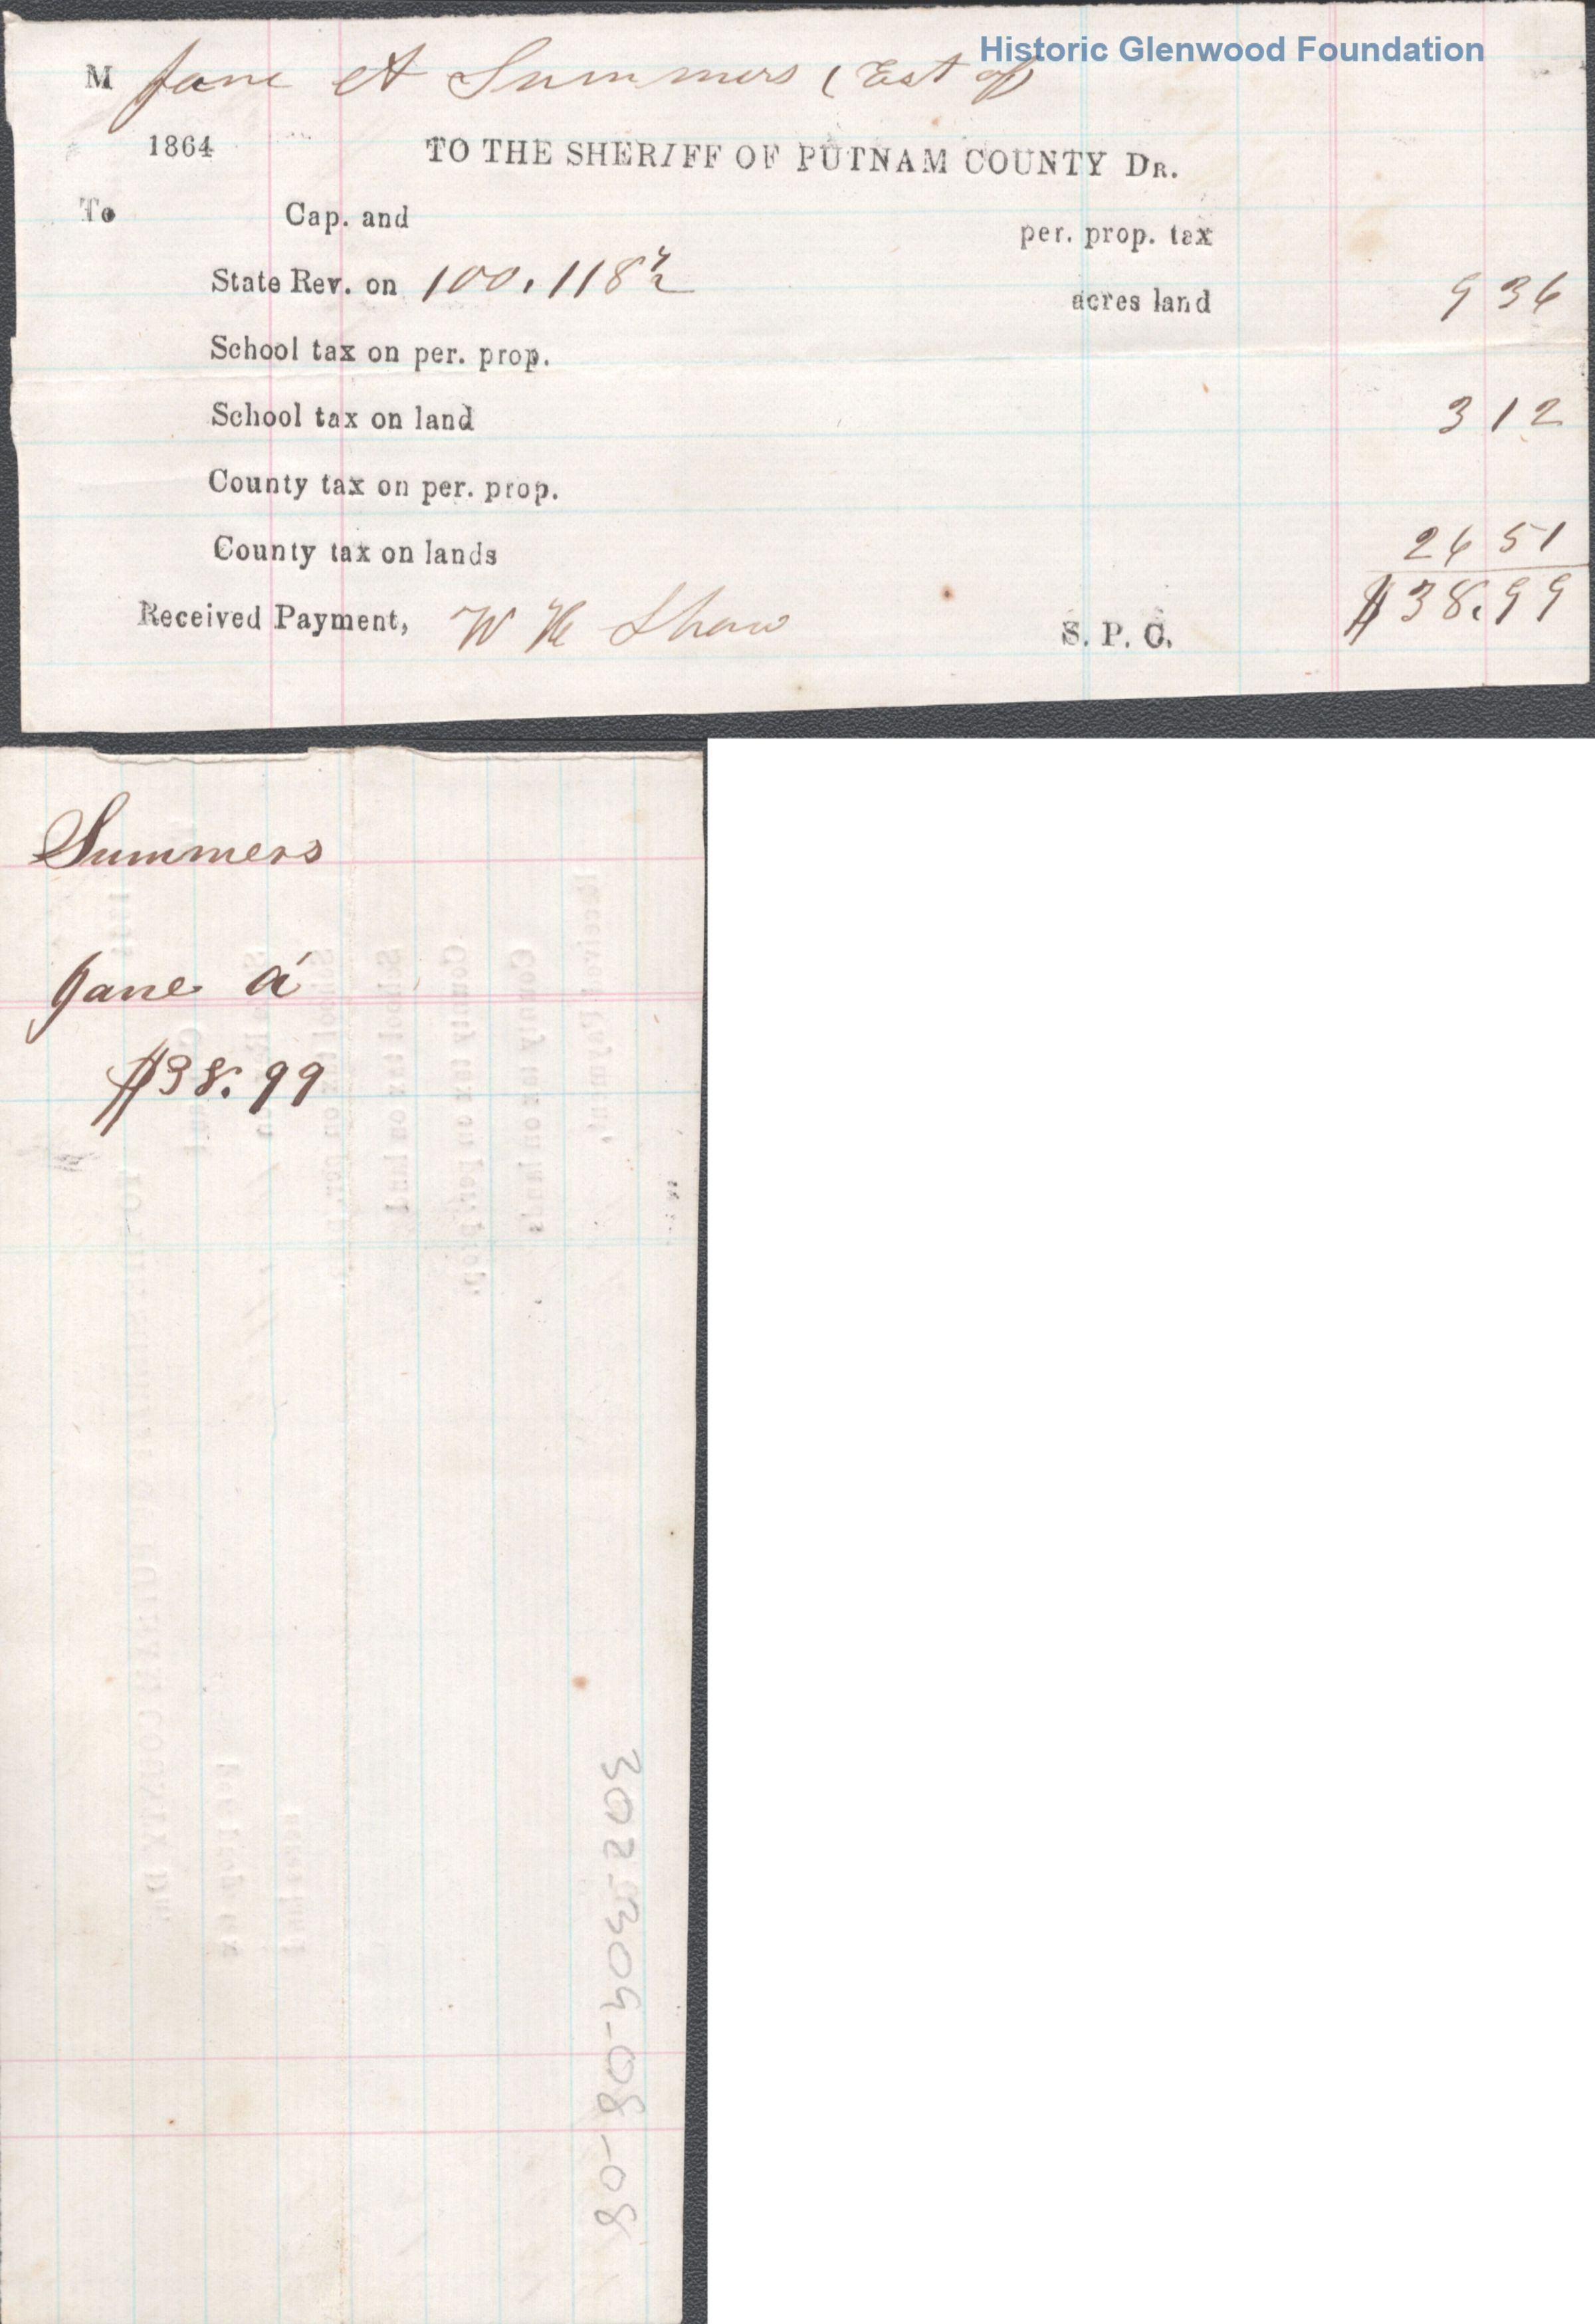 Historic Glenwood Foundation
M Jane A Summers (Est of)
1864 TO THE SHERIFF OF PUTNAM COUNTY DR.
To Cap. and per. prop. tax
State Rev. on 100. 118½ acres land 9 36
School tax on per. prop.
School tax on land 3 12
County tax on per. prop.
County tax on lands 26 51
Received Payment, W H Shaw S. P. C. $38.99
Summers
Jane A
$38.99